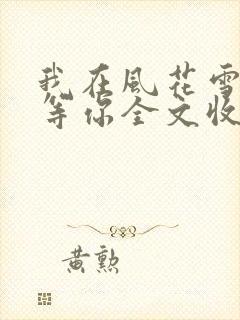 我在風花雪
等你全文收
黃勲